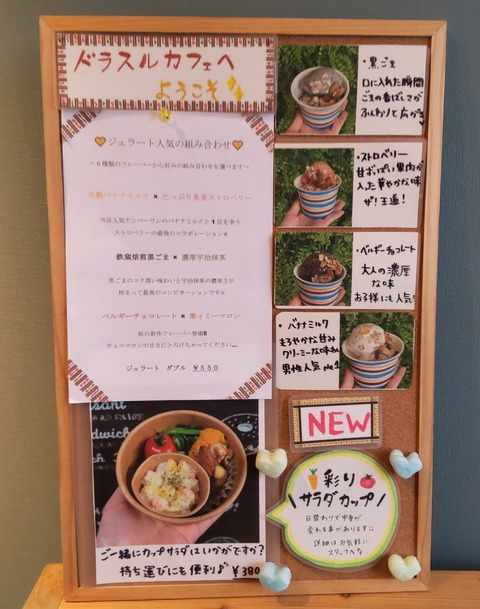 ドラスルカフェへ
ようこそ
ジェラート人気の組み合わせ
～6種類のフレーバーから好みの組み合わせを選べます～
完熟バナナミルク × たっぷり果実ストロベリー
当店人気ナンバーワンのバナナミルクと1位を争う
ストロベリーの最強のコラボレーション☆
鉄窯焙煎黒ごま × 濃厚宇治抹茶
黒ごまのコク深い味わいと宇治抹茶の濃厚さが
相まって最高のコンビネーションです☆
ベルギーチョコレート × 栗ィミーマロン
秋の新作フレーバー登場!!
チョコマロンの甘さにとろけちゃってください…
ジェラート ダブル ¥550
・黒ごま
口に入れた瞬間
ごまの香ばしさが
ふんわりと広がる
・ストロベリー
甘ずっぱい果肉が
入った華やかな味
ザ!王道!
・ベルギーチョコレート
大人の濃厚
な味
お子様にも人気!
・バナナミルク
まろやかな甘み
クリーミーな味わい
男性人気No.1
NEW
彩り
サラダカップ
日替わりで中身が
変わる事があります
詳細はお気軽に
スタッフへ
ご一緒にカップサラダはいかがですか?
持ち運びにも便利♪ ¥380